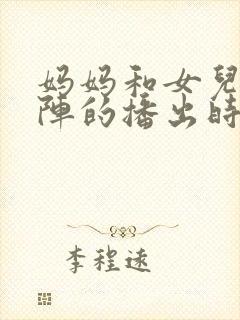 妈妈和女兒
陣的播出時
李程遠